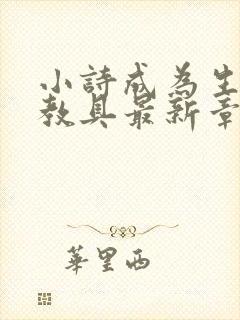 小詩成為生
教具最新章
華里西